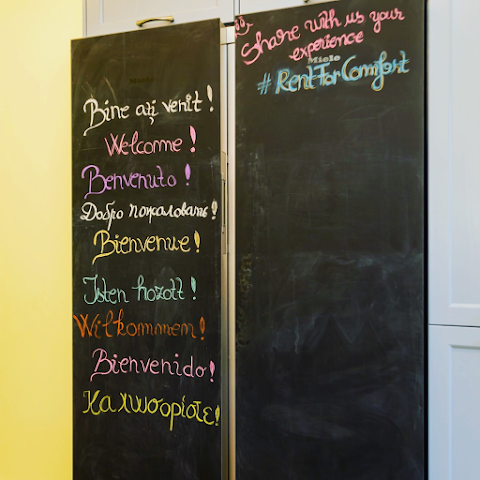 Bine ați venit!
Welcome!
Benvenuto!
Добро пожаловать!
Bienvenue!
Isten hozott!
Wilkommen!
Bienvenido!
Καλωσορίστε!
Share with us your
experience
Miele
# RentForComfort